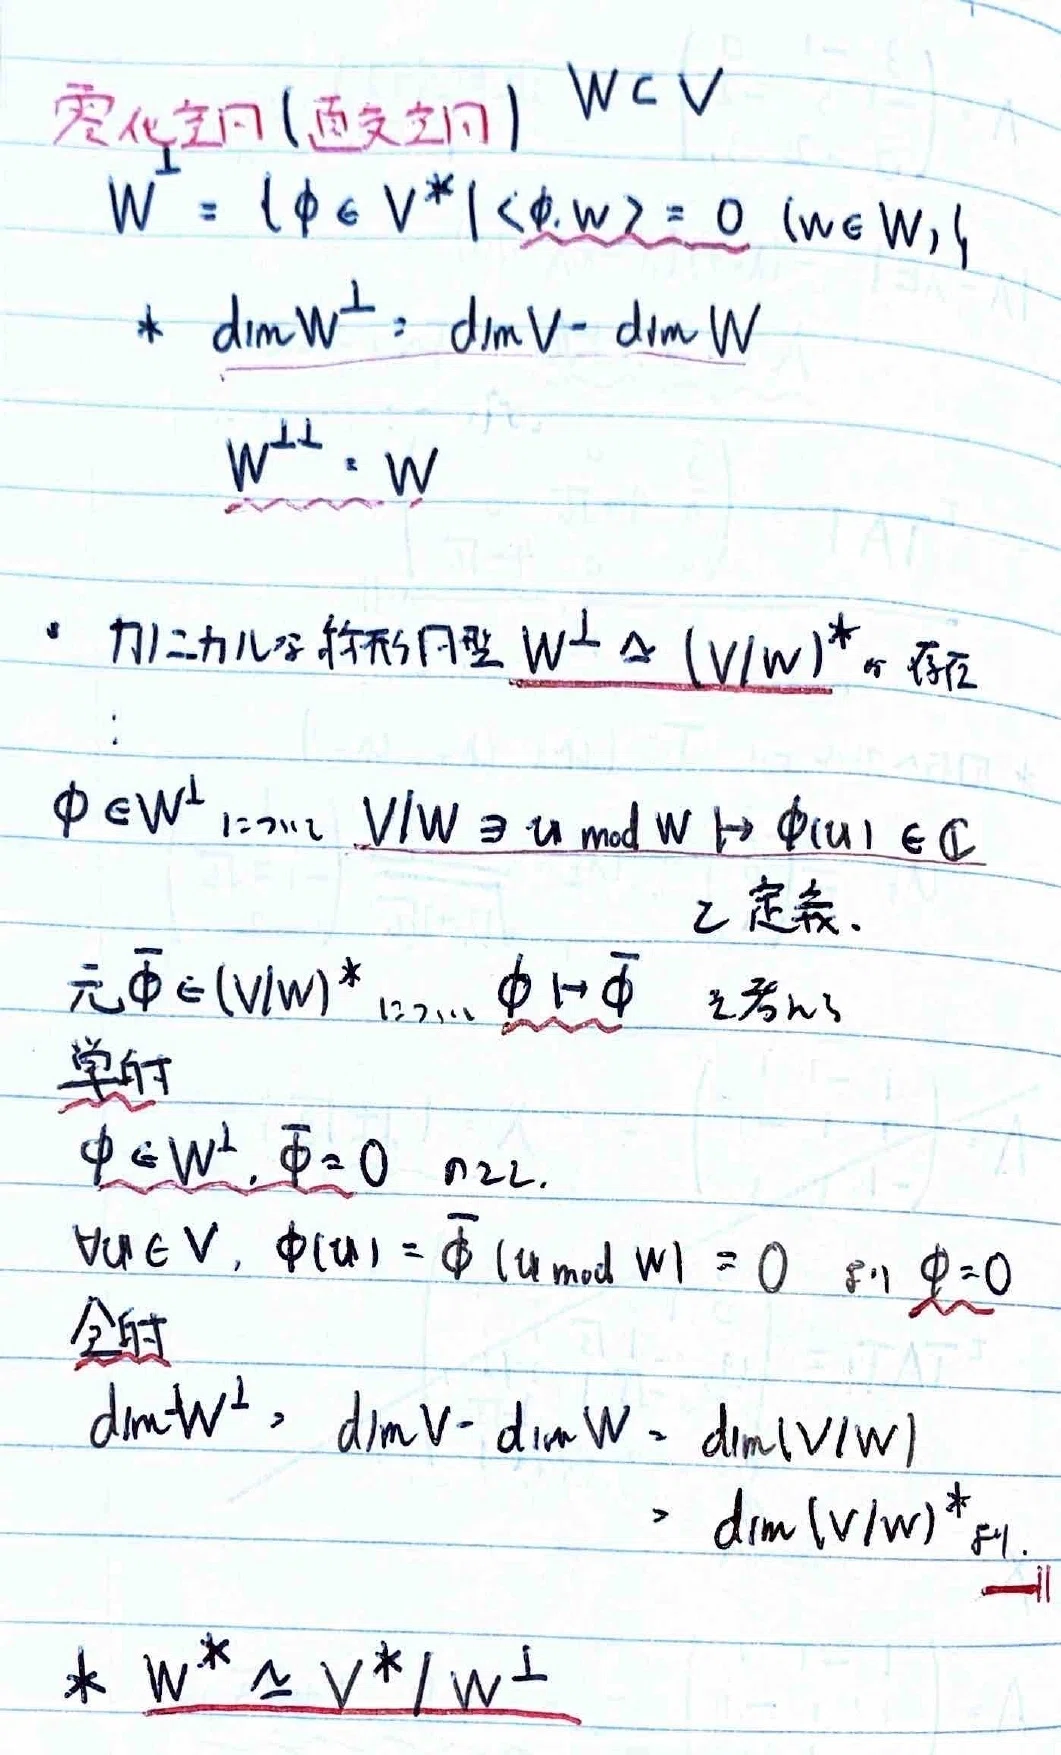 零化空间(直交空间) W⊂V
W^⊥ = {φ∈V*|<φ.w>=0 (w∈W)}
* dimW^⊥ = dimV - dimW
W^⊥⊥ = W
・カノニカルな線形同型 W^⊥ ≃ (V/W)* の存在
:
φ∈W^⊥ について V/W ∋ u mod W ↦ φ(u) ∈ ℂ
と定義.
元 Φ̄ ∈ (V/W)* について φ ↦ Φ̄ を考える
単射
φ∈W^⊥, Φ̄=0 のとし.
∀u∈V, φ(u) = Φ̄(u mod W) = 0 より φ=0
全射
dimW^⊥ = dimV - dimW = dim(V/W)
= dim(V/W)* より.
* W* ≃ V*/W^⊥